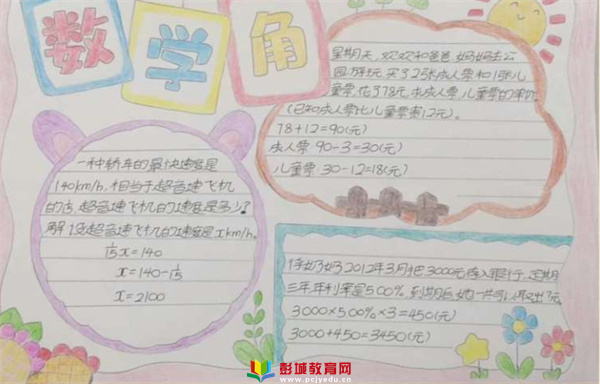 数学角
星期天，欢欢和爸爸、妈妈去公
园游玩，买了2张成人票和1张儿
童票，花了78元，求成人票，儿童票的单价
(已知成人票比儿童票贵12元)。
78+12=90(元)
成人票 90÷3=30(元)
儿童票 30-12=18(元)
一种轿车的最快速度是
140km/h，相当于超音速飞机
的 超音速飞机的速度是多少？
解：设超音速飞机的速度是xkm/h。
x=140
x=140÷
x=2100
李奶奶2012年3月把3000元存入银行，定期
三年，年利率是5.00%，到期后她一共可以取出 元
3000×5.00%×3=450(元)
3000+450=3450(元)
彭城教育网
www.pcjyedu.cn